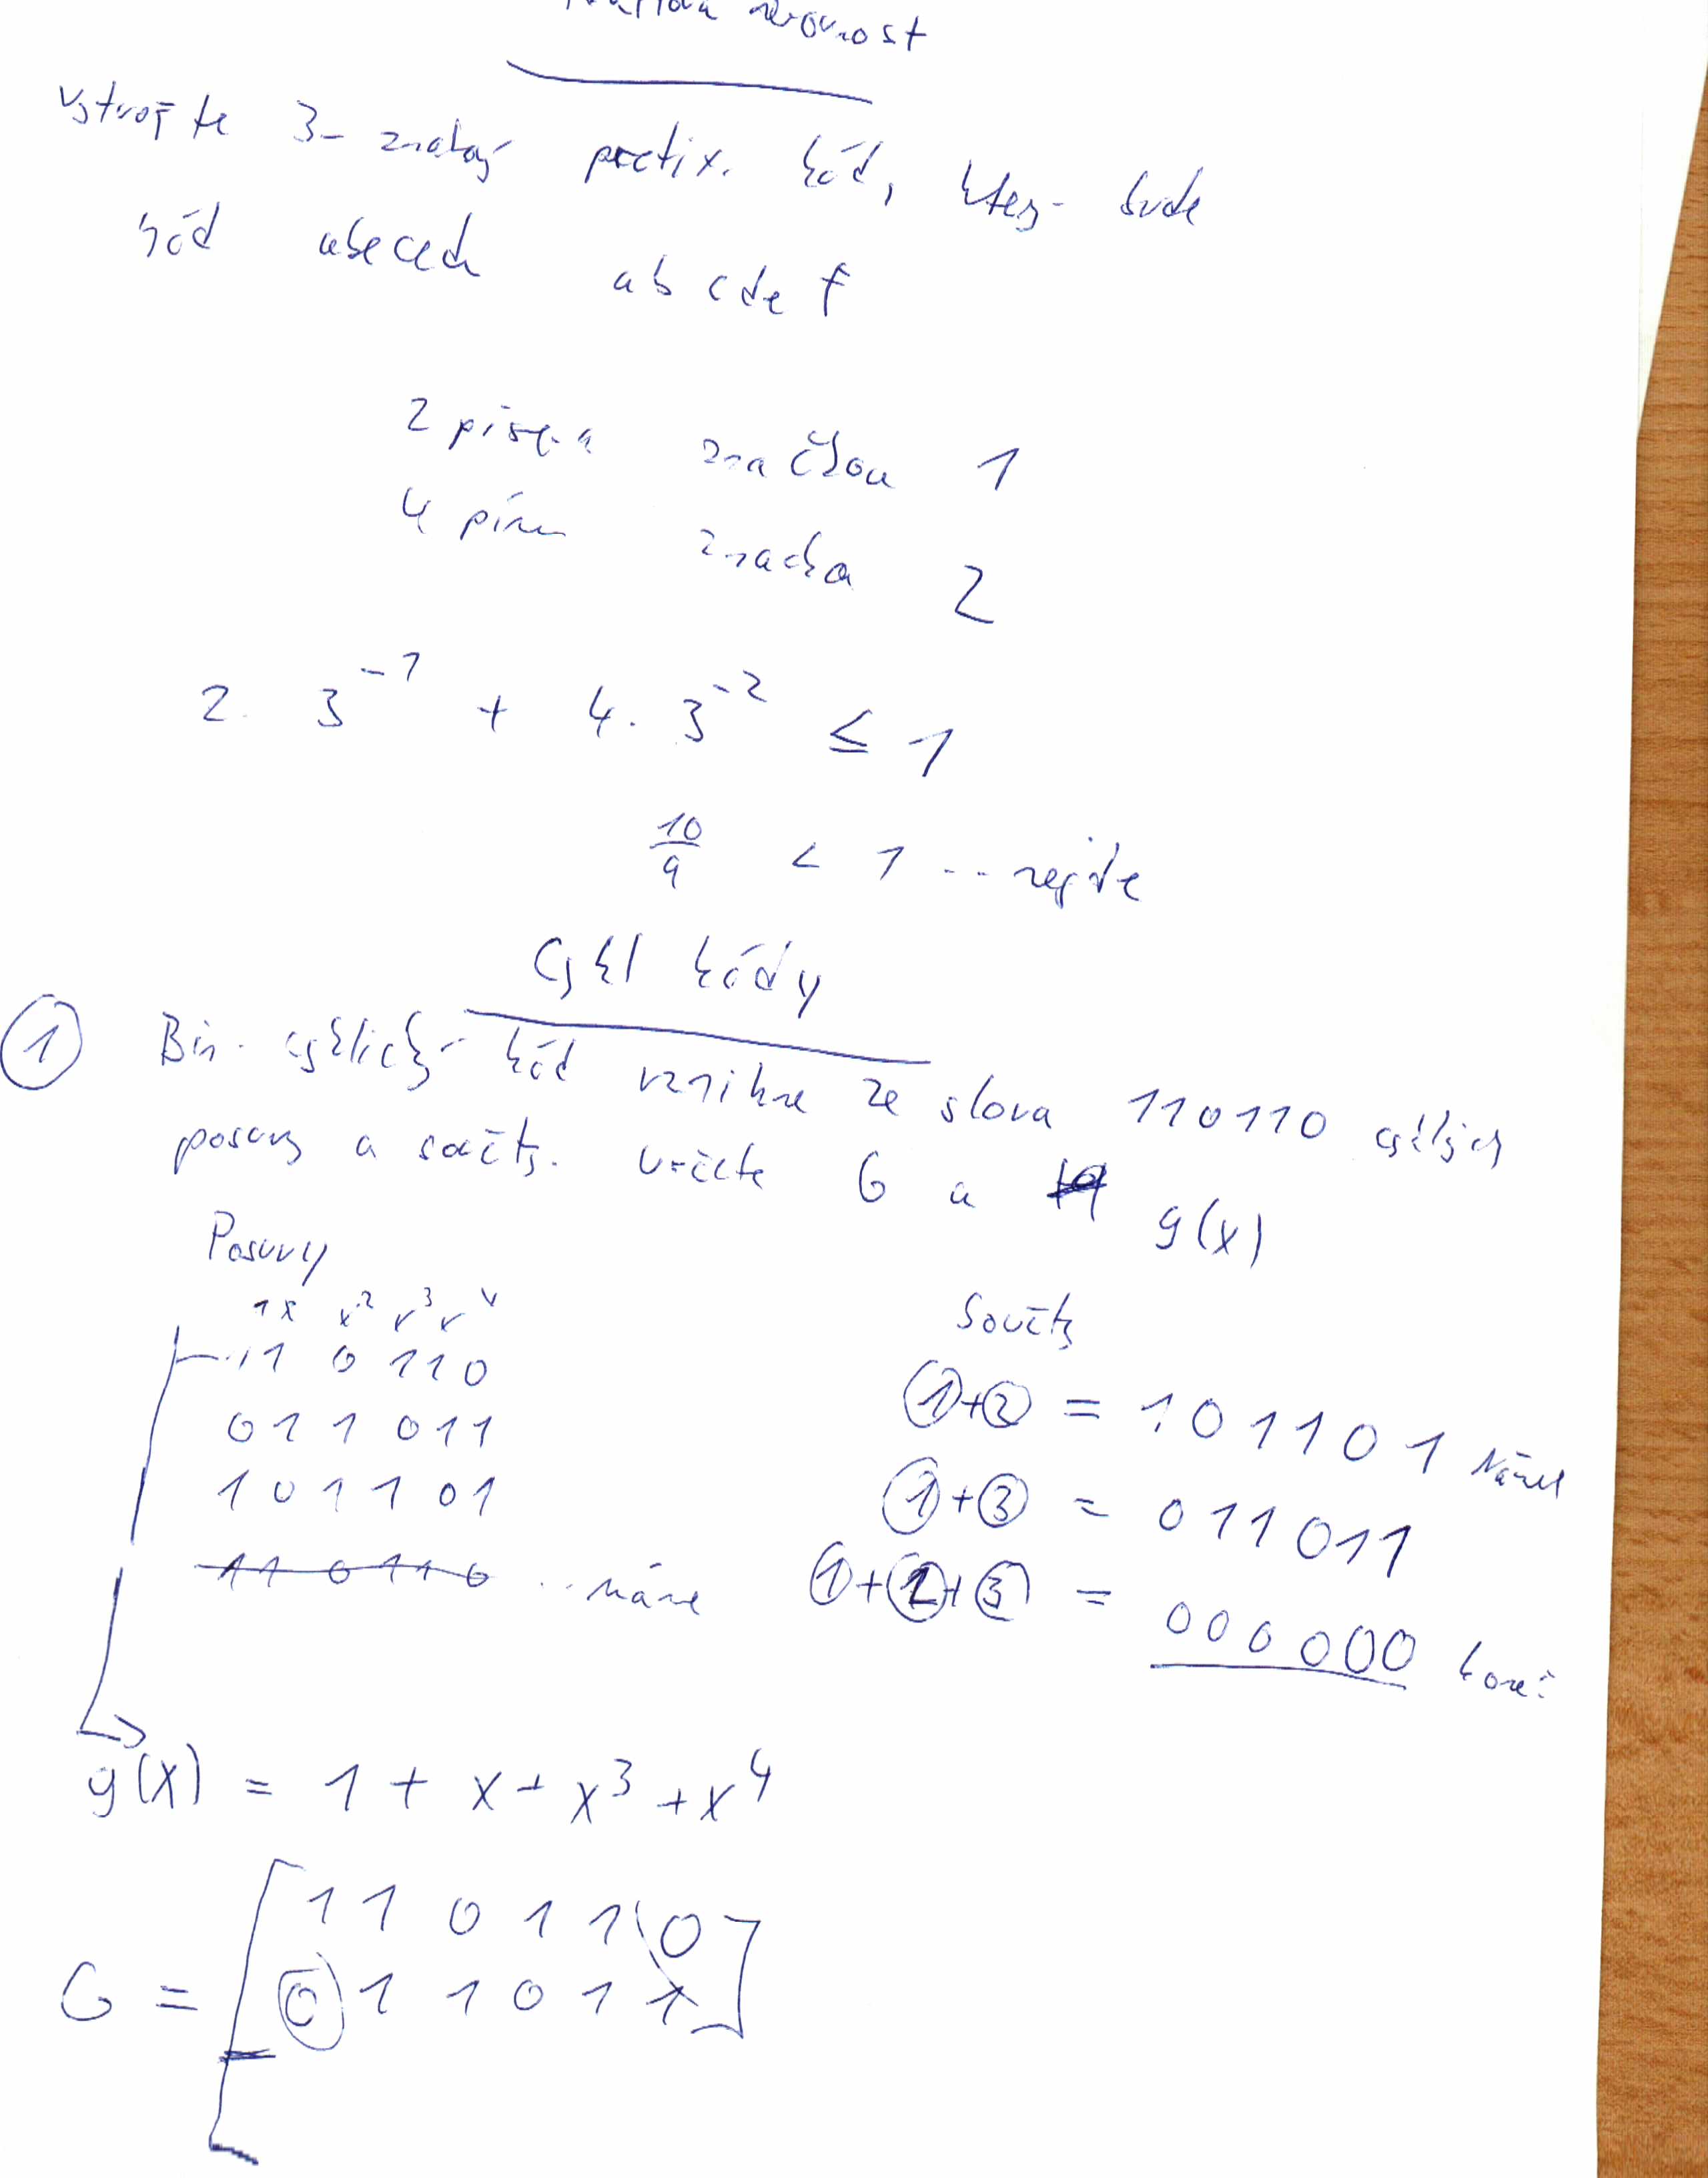 nerovnost
vytvořte 3-znakový prefix. kód, který bude
kód abeced abcdef
2 písmena značkou 1
4 písm značka 2
2. 3^-1 + 4. 3^-2 ≤ 1
10/9 < 1 ... nejde
Cykl kódy
① Bin. cyklický kód vznikne ze slova 110110 cyklických
posuvy a součty. Určete G a g(x)
Posuvy
1 x x^2 x^3 x^4
110110
011011
101101
110110 ... máme
Součty
①+② = 101101 Máme
①+③ = 011011
①+②+③ = 000000 koneč
g(x) = 1 + x + x^3 + x^4
G = [ 1 1 0 1 1 0 ]
0 1 1 0 1 1